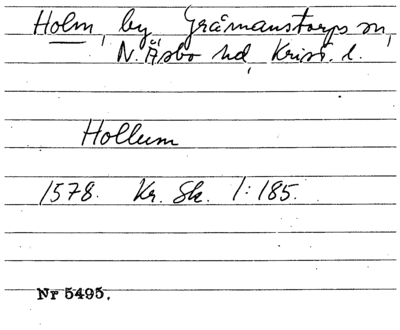 Holm, by Gråmanstorps sn,
N. Åsbo hd, Krist. l.
Hollum
1578. Kr. Sk. 1:185.
Nr 5495.